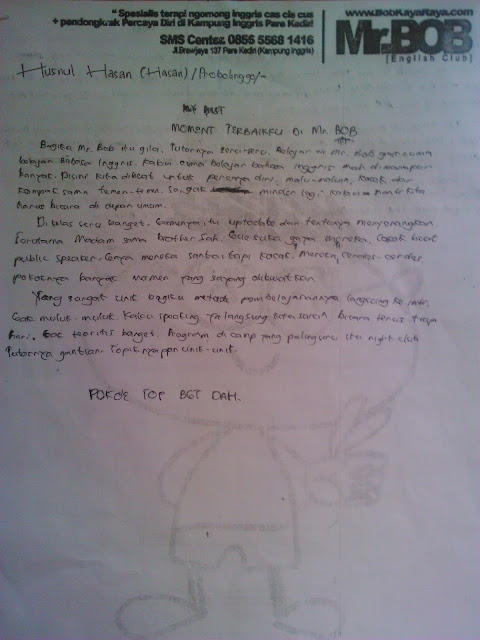 " Spesialis terapi ngomong Inggris cas cis cus
+ pendongkrak Percaya Diri di Kampung Inggris Pare Kediri"
SMS Center 0856 5568 1416
Jl.Brawijaya 137 Pare Kediri (Kampung Inggris)
www.BobKayaRaya.com
Mr.BOB
[English Club]
Husnul Hasan (Hasan) / Probolinggo/-
MOMENT TERBAIKKU DI Mr. BOB
Bagiku Mr. Bob itu gila. Tutornya seru-seru. Belajar di Mr. Bob gak cuma
belajar Bahasa Inggris. Kalau cuma belajar bahasa Inggris mah dimanapun
banyak. Disini kita dibuat untuk percaya diri, malu-maluin, kocak dan
kompak sama temen-temen. Sangat minder lagi kalau kita
harus bicara di depan umum.
Di kelas seru banget. Gamenya itu uptodate dan tentunya menyenangkan.
Terutama Madam sama brother Jak. Gue suka gaya mereka. Cocok buat
public speaker. Gaya mereka santai tapi kocak. Mereka cerdas-cerdas
pokoknya banyak momen yang sayang dilewatkan
Yang sangat unik bagiku metode pembelajarannya langsung ke inti,
Gak muluk-muluk. Kalau speaking ya langsung kita suruh bicara terus tiap
hari. Gak teoritis banget. Program di camp yang paling seru itu night club
Tutornya gantian. Topiknya pun unik-unik.
POKOE TOP BGT DAH.